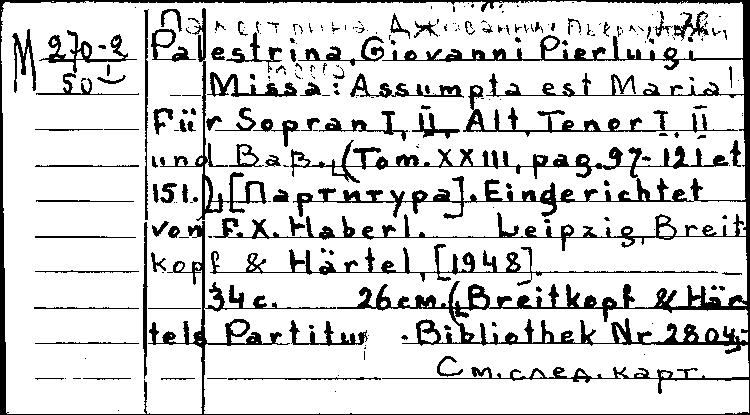 Палестрина Джованни Пьерлуиджи
M 270-2 Palestrina, Giovanni Pierluigi
50 Missa: Assumpta est Maria!
Für Sopran I, II, Alt, Tenor I, II
und Baß. (Tom. XXIII, pag. 97-121 et
151.), [Партитура]. Eingerichtet
von F. X. Haberl. Leipzig, Breit-
kopf & Härtel, [1948].
34 с. 26 см. (Breitkopf & Här-
tels Partitur-Bibliothek Nr 2804)
См. след. карт.